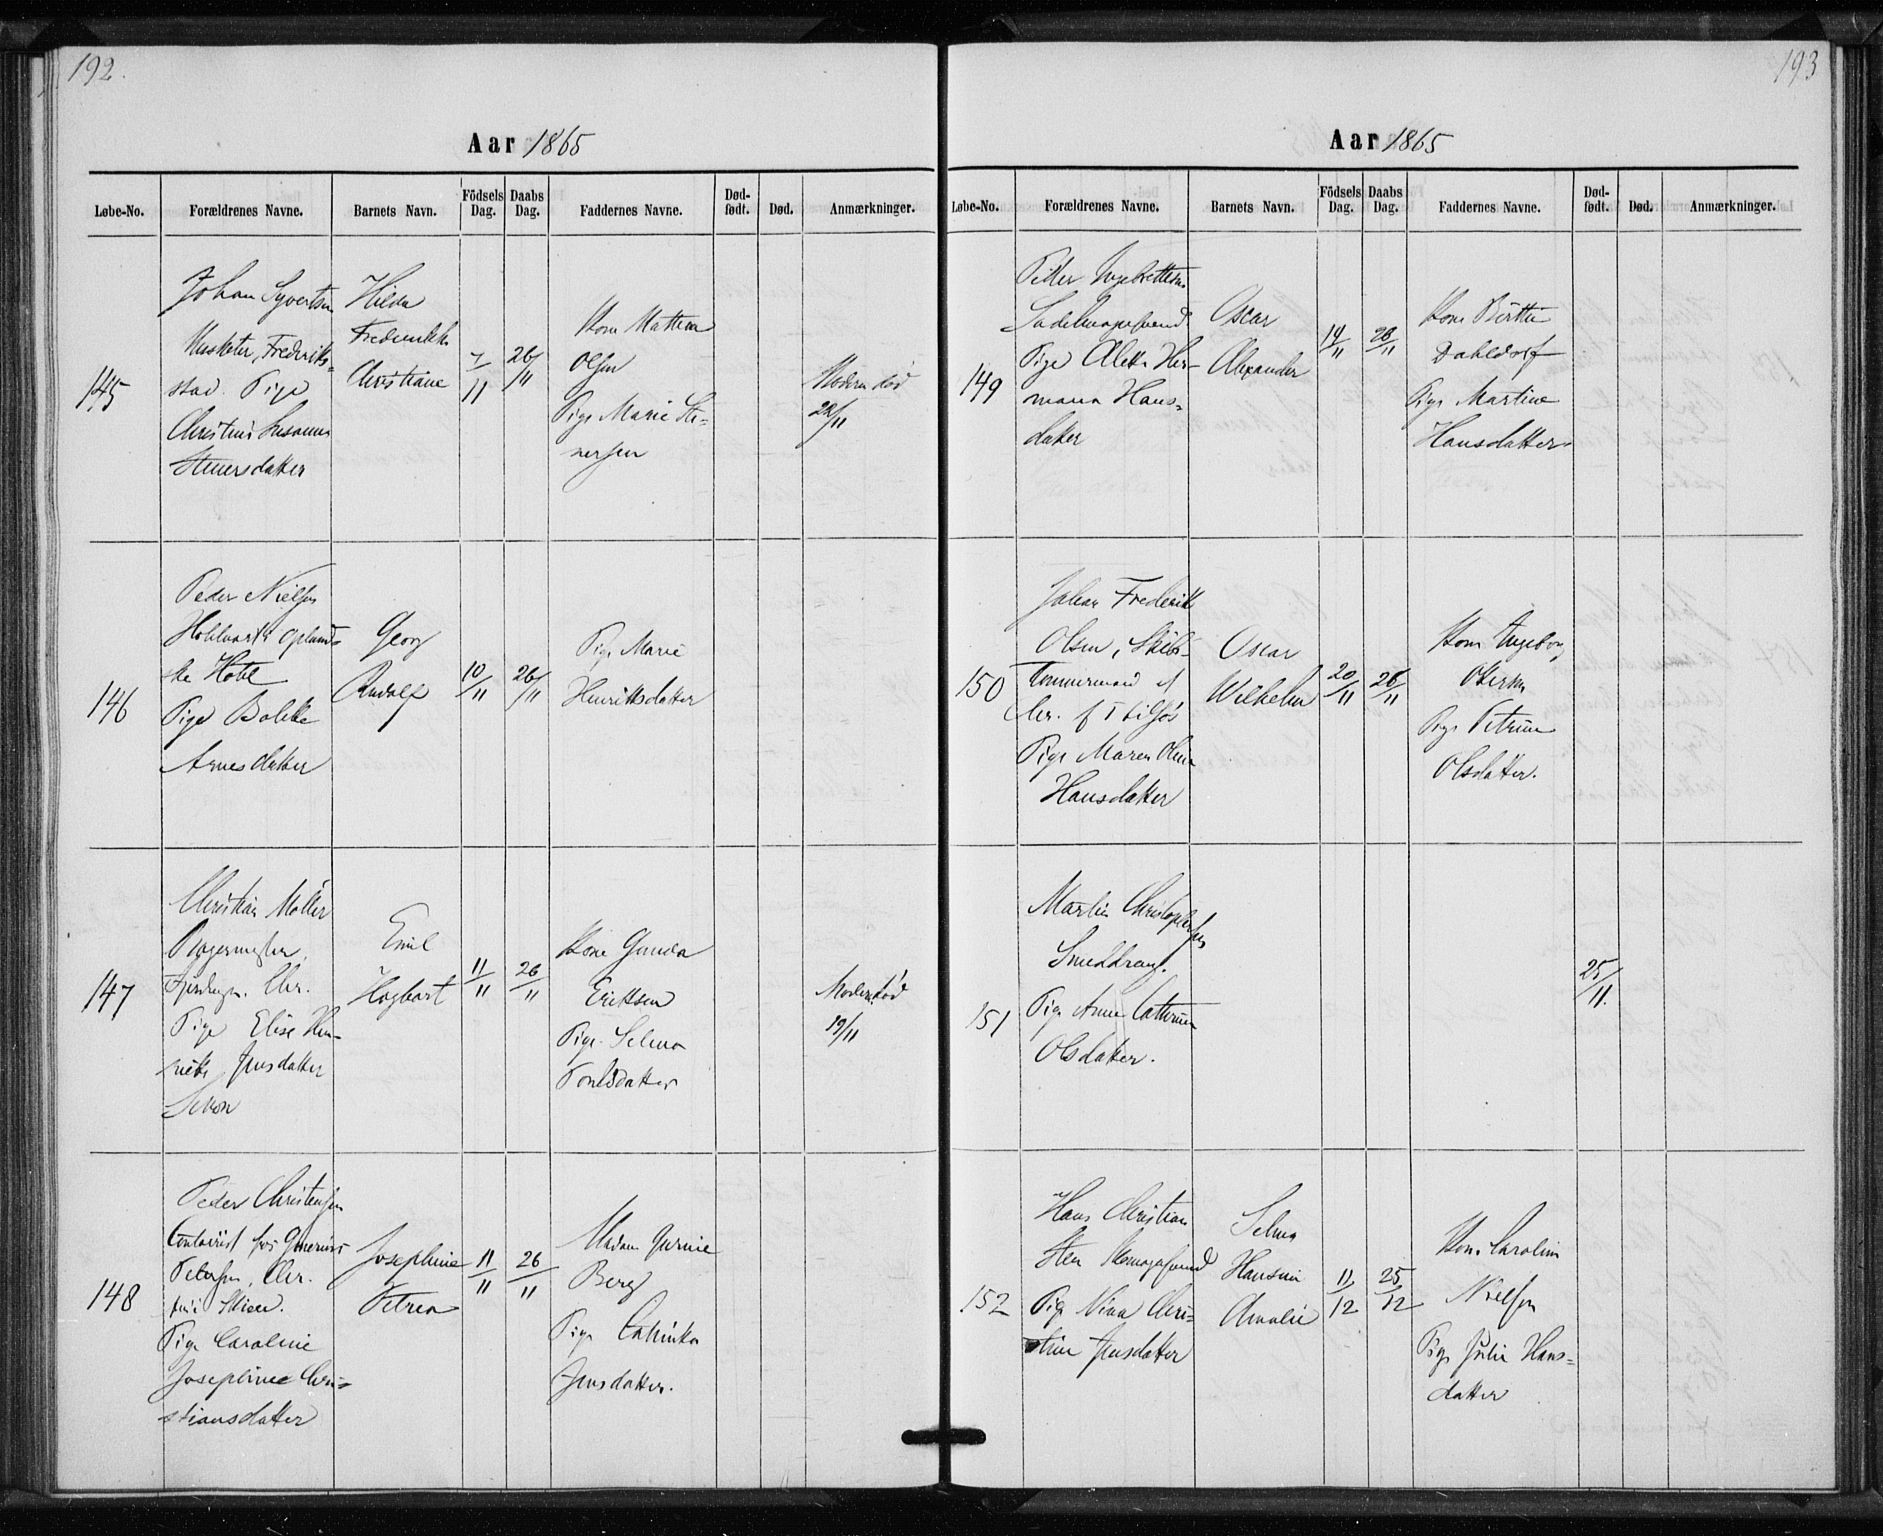 192.
Aar 1865
Løbe-No. Forældrenes Navne. Barnets Navn. Födsels Dag. Daabs Dag. Faddernes Navne. Død-født. Død. Anmærkninger.
145
Johan Syvertsen
Musketer, Frederik-
stad. Pige
Christine Susanna
Stenersdatter
Hilda
Fredrikke
Christiane
7/11
26/11
Kone Mathea
Olsen
Pige Marie Ste-
nersen
Moderen død
22/11
146
Peder Nielsen
Oplands-
ske Hotel
Pige Bolette
Arnesdatter
Georg
Rudolf
10/11
26/11
Pige Marie
Henriksdatter
147
Christian Møller
Chr.
Pige Elise Hen-
riette Jensdatter
Emil
Hagbart
11/11
26/11
Kone Gunda
Eriksen
Pige Selma
Poulsdatter
Moderen død
19/11
148
Peder Christensen
Contorist hos
Petersen, Chr.
Pige Caroline
Josephine Chri-
stiansdatter
Josephine
Petrea
11/11
26/11
Madam
Berg
Pige Cathinka
Jensdatter.
193
Aar 1865
Løbe-No. Forældrenes Navne. Barnets Navn. Födsels Dag. Daabs Dag. Faddernes Navne. Død-født. Død. Anmærkninger.
149
Peter Ingebrettsen
Sadelmagersvend
Pige Alette Her-
mana Hans-
datter
Oscar
Alexander
14/11
26/11
Kone Berthe
Dahldorf
Pige Martine
Hansdatter
150
Johan Frederik
Olsen, Skibs-
tømmermand
Pige Maren Oline
Hansdatter
Oscar
Wilhelm
20/11
26/11
Kone Ingeborg
Pige Petrine
Olsdatter.
151
Martin Christophersen
Smeddreng.
Pige Anne Cathrine
Olsdatter.
25/11.
152
Hans Christian
Sten Skomagersvend
Pige Nina Chri-
stine Jensdatter
Selma
Hansine
Amalie
11/12
25/12
Kone Caroline
Nielsen
Pige Julie Hans-
datter